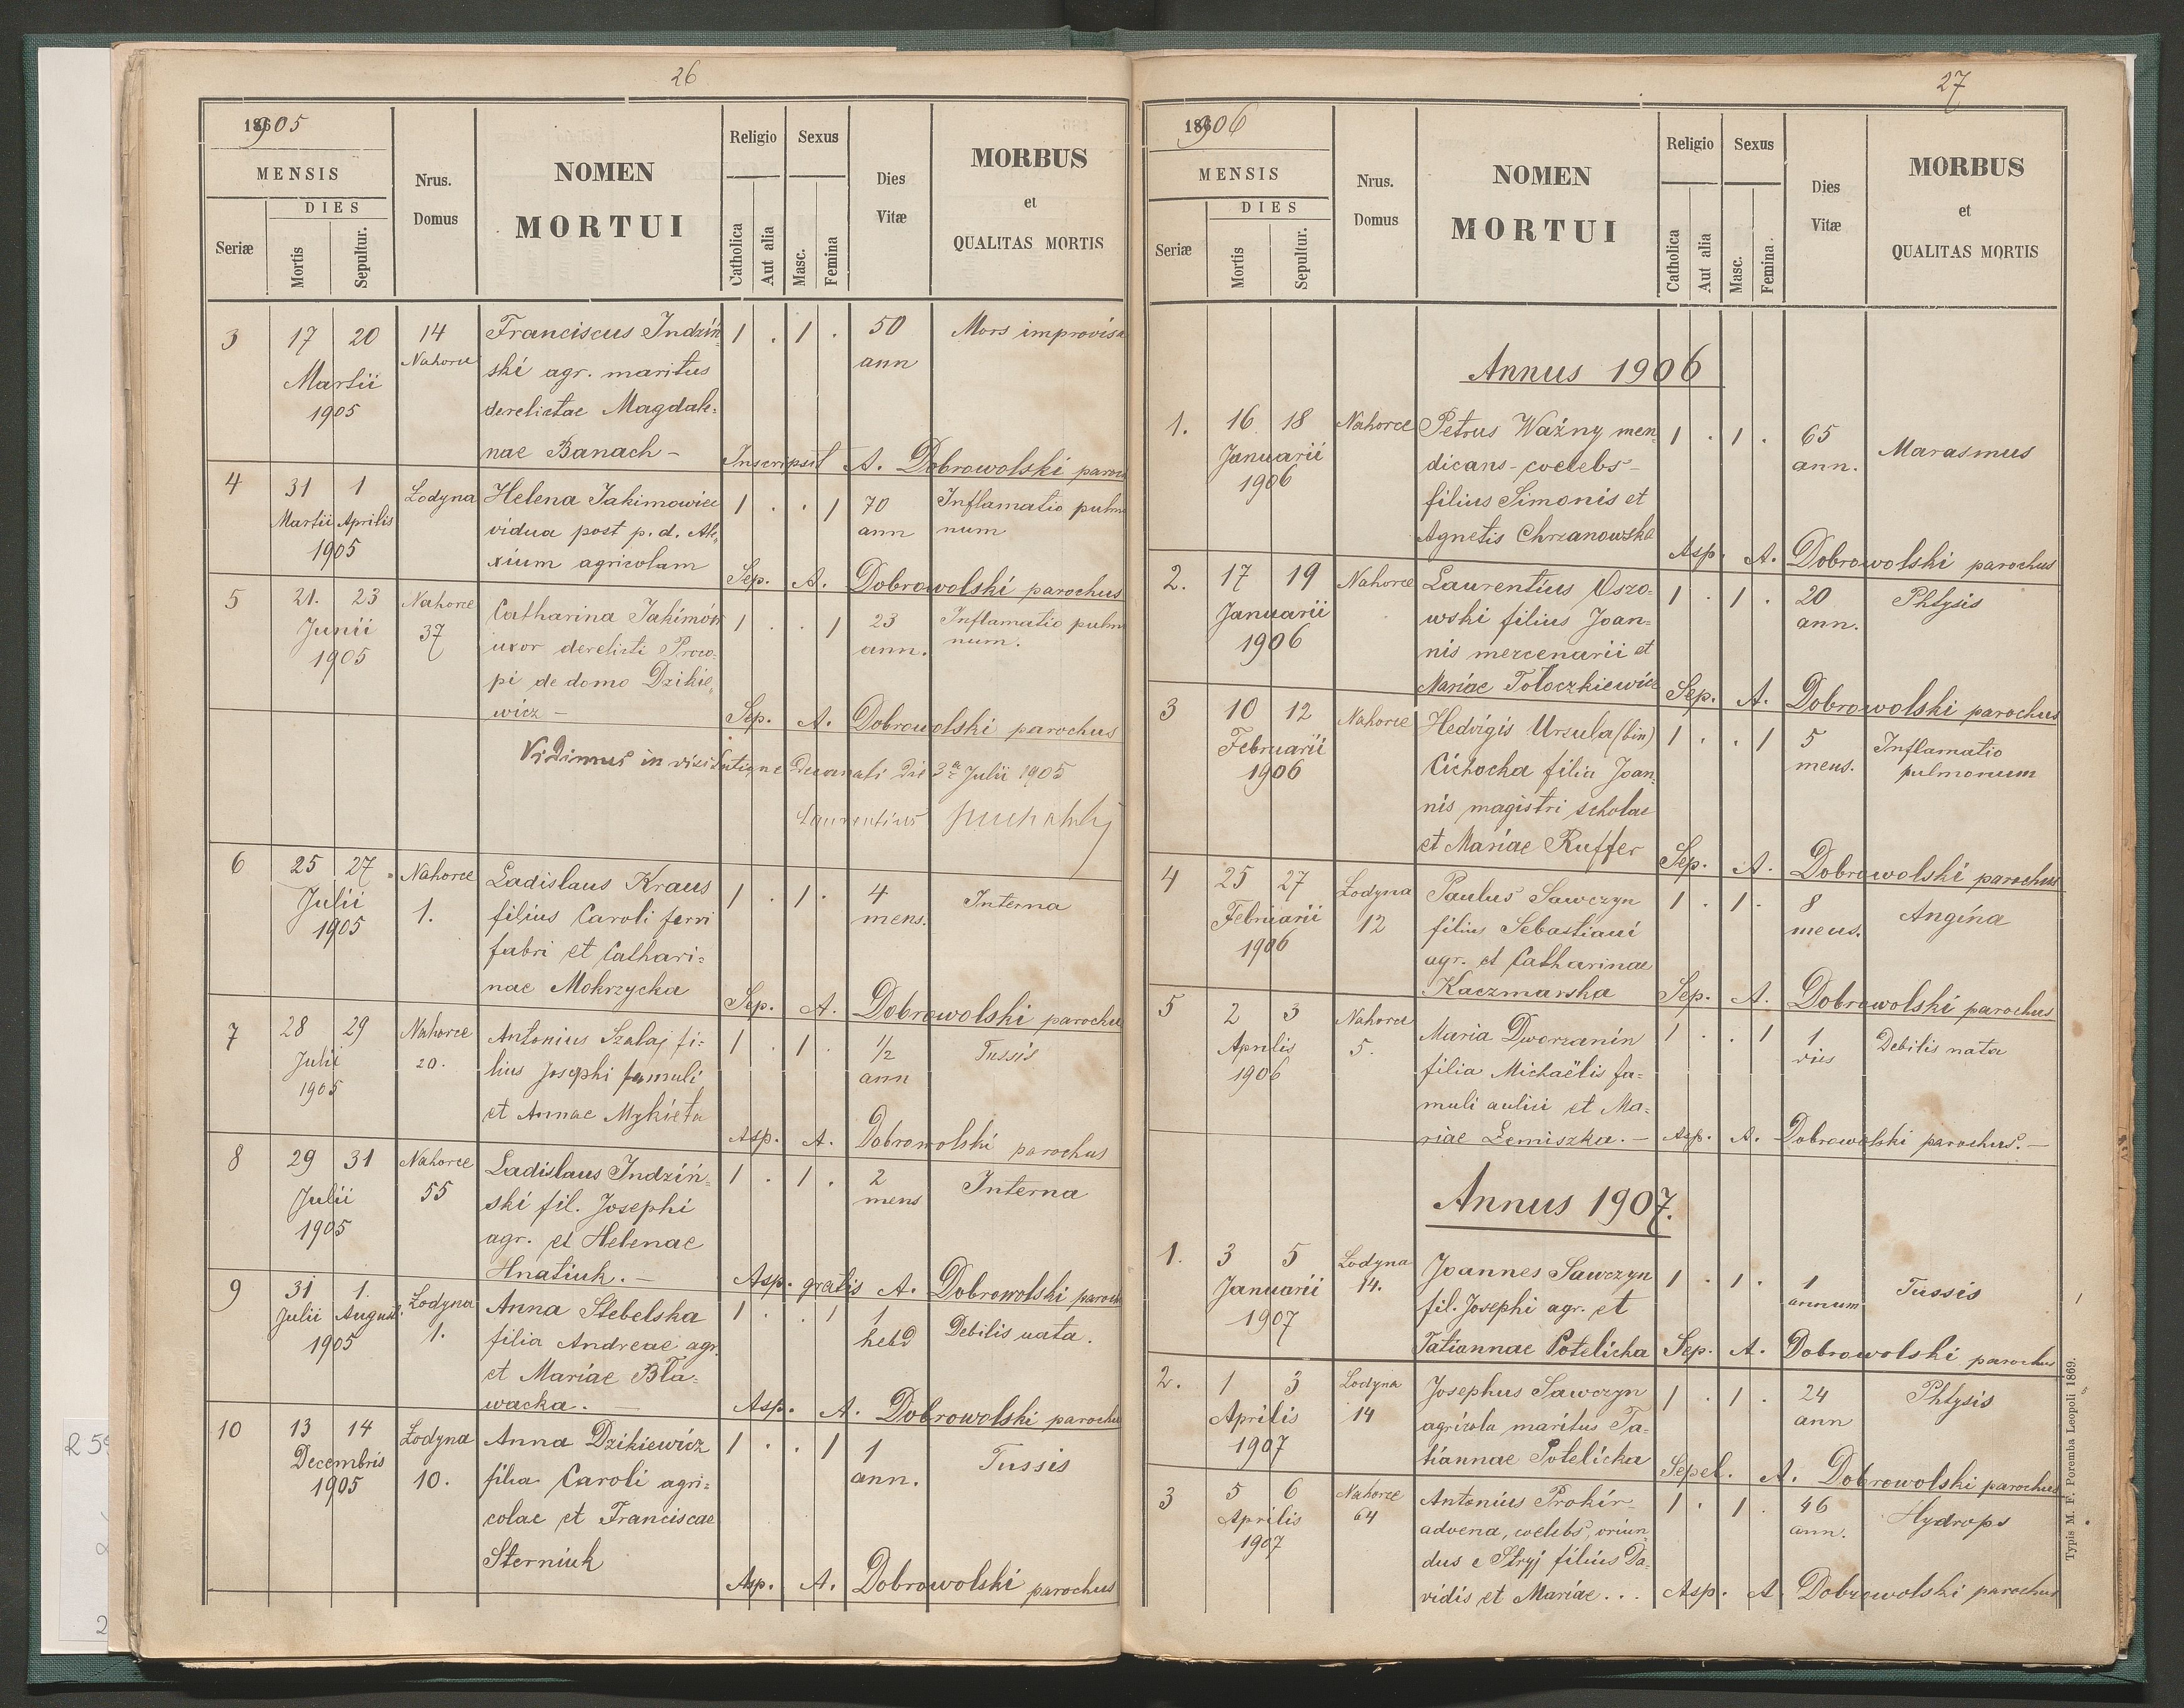 26
1905
MENSIS
DIES
Seriæ
Mortis
Sepultur.
Nrus.
Domus
NOMEN
MORTUI
Religio
Catholica
Aut alia
Sexus
Masc.
Femina
Dies
Vitæ
MORBUS
et
QUALITAS MORTIS
3 17 20 14 Franciscus Indziń- 1 . 1 . 50 Mors improvisa
Nahorce ski agr. maritus ann
Martii
1905 derelictae Magdale-
nae Banach – Inscripsit A. Dobrowolski paroch
4 31 1 Łodyna Helena Jakimowicz 1 . . 1 70 Inflamatio pulmo
Martii Aprilis vidua post p. d. Ale- ann num
1905 xium agricolam Sep. A. Dobrowolski parochus
5 21. 23 Nahorce Catharina Jakimów 1 . . 1 23 Inflamatio pulmo
Junii 37 uxor derelicti Proco- ann. num.
1905 pi de domo Dzikie-
wicz – Sep. A. Dobrowolski parochus
Vidimus in visitatione Decanali die 3a Julii 1905
Laurentius
6 25 27 Nahorce Ladislaus Kraus 1 . 1 . 4 Interna
Julii 1. filius Caroli ferri mens.
1905 fabri et Cathari-
nae Mokrzycka Sep. A. Dobrowolski parochus
7 28 29 Nahorce Antonius Szalaj fi- 1 . 1 . 1/2 Tussis
Julii 20. lius Josephi famuli ann
1905 et Annae Mykieta Asp. A. Dobrowolski parochus
8 29 31 Nahorce Ladislaus Indziń- 1 . 1 . 2 Interna
Julii 55 ski fil. Josephi mens
1905 agr. et Helenae
Hnatiuk. – Asp. gratis A. Dobrowolski paroch
9 31 1. Łodyna Anna Stebelska 1 . . 1 1 Debilis nata.
Julii Augusti 1. filia Andreae agr. hebd
1905 et Mariae Bła-
wacka. – Asp. A. Dobrowolski parochu
10 13 14 Łodyna Anna Dzikiewicz 1 . . 1 1 Tussis
Decembris 10. filia Caroli agri- ann.
1905 colae et Franciscae
Sterniuk Asp. A. Dobrowolski parochus
27
1906
MENSIS
DIES
Seriæ
Mortis
Sepultur.
Nrus.
Domus
NOMEN
MORTUI
Religio
Catholica
Aut alia
Sexus
Masc.
Femina.
Dies
Vitæ
MORBUS
et
QUALITAS MORTIS
Annus 1906
1. 16 18 Nahorce Petrus Ważny men- 1 . 1 . 65 Marasmus
Januarii dicans - coelebs - ann.
1906 filius Simonis et
Agnetis Chrzanowska Asp. A. Dobrowolski parochus
2. 17 19 Nahorce Laurentius Oszo- 1 . 1 . 20 Phtysis
Januarii wski filius Joan- ann.
1906 nis mercenarii et
Mariae Tołoczkiewicz Sep. A. Dobrowolski parochus
3 10 12 Nahorce Hedvigis Ursula (bin) 1 . . 1 5 Inflamatio
Februarii Cichocka filia Joan- mens. pulmonum
1906 nis magistri scholae
et Mariae Ruffer Sep. A. Dobrowolski parochus
4 25 27 Łodyna Paulus Sawczyn 1 . 1 . 8 Angina
Februarii 12 filius Sebastiani mens.
1906 agr. et Catharinae
Kaczmarska Sep. A. Dobrowolski parochus
5 2 3 Nahorce Maria Dworzanin 1 . . 1 1 Debilis nata
Aprilis 5. filia Michaëlis fa- dies
1906 muli aulici et Ma-
riae Lemiszka. – Asp. A. Dobrowolski parochus. –
Annus 1907.
1. 3 5 Łodyna Joannes Sawczyn 1 . 1 . 1 Tussis
Januarii 14. fil. Josephi agr. et annum
1907 Tatiannae Potelicka Sep. A. Dobrowolski parochus
2. 1 3 Łodyna Josephus Sawczyn 1 . 1 . 24 Phtysis
Aprilis 14 agricola maritus Ta- ann
1907 tiannae Potelicka Sepel. A. Dobrowolski parochus
3 5 6 Nahorce Antonius Prokir- 1 . 1 . 46 Hydrops
Aprilis 64 advena, coelebs, oriun- ann.
1907 dus e Stryj filius Da-
vidis et Mariae ... Asp. A. Dobrowolski parochus
Typis M. F. Poremba Leopoli 1869.